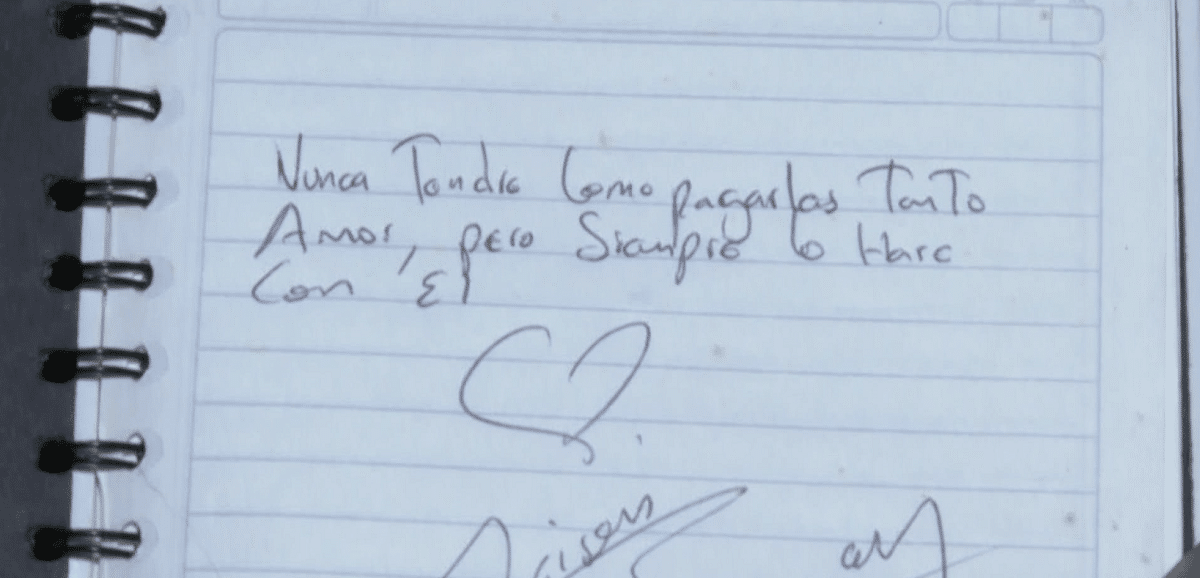 Nunca Tendre Como pagarles Tanto
Amor, pero Siempre lo Hare
Con El